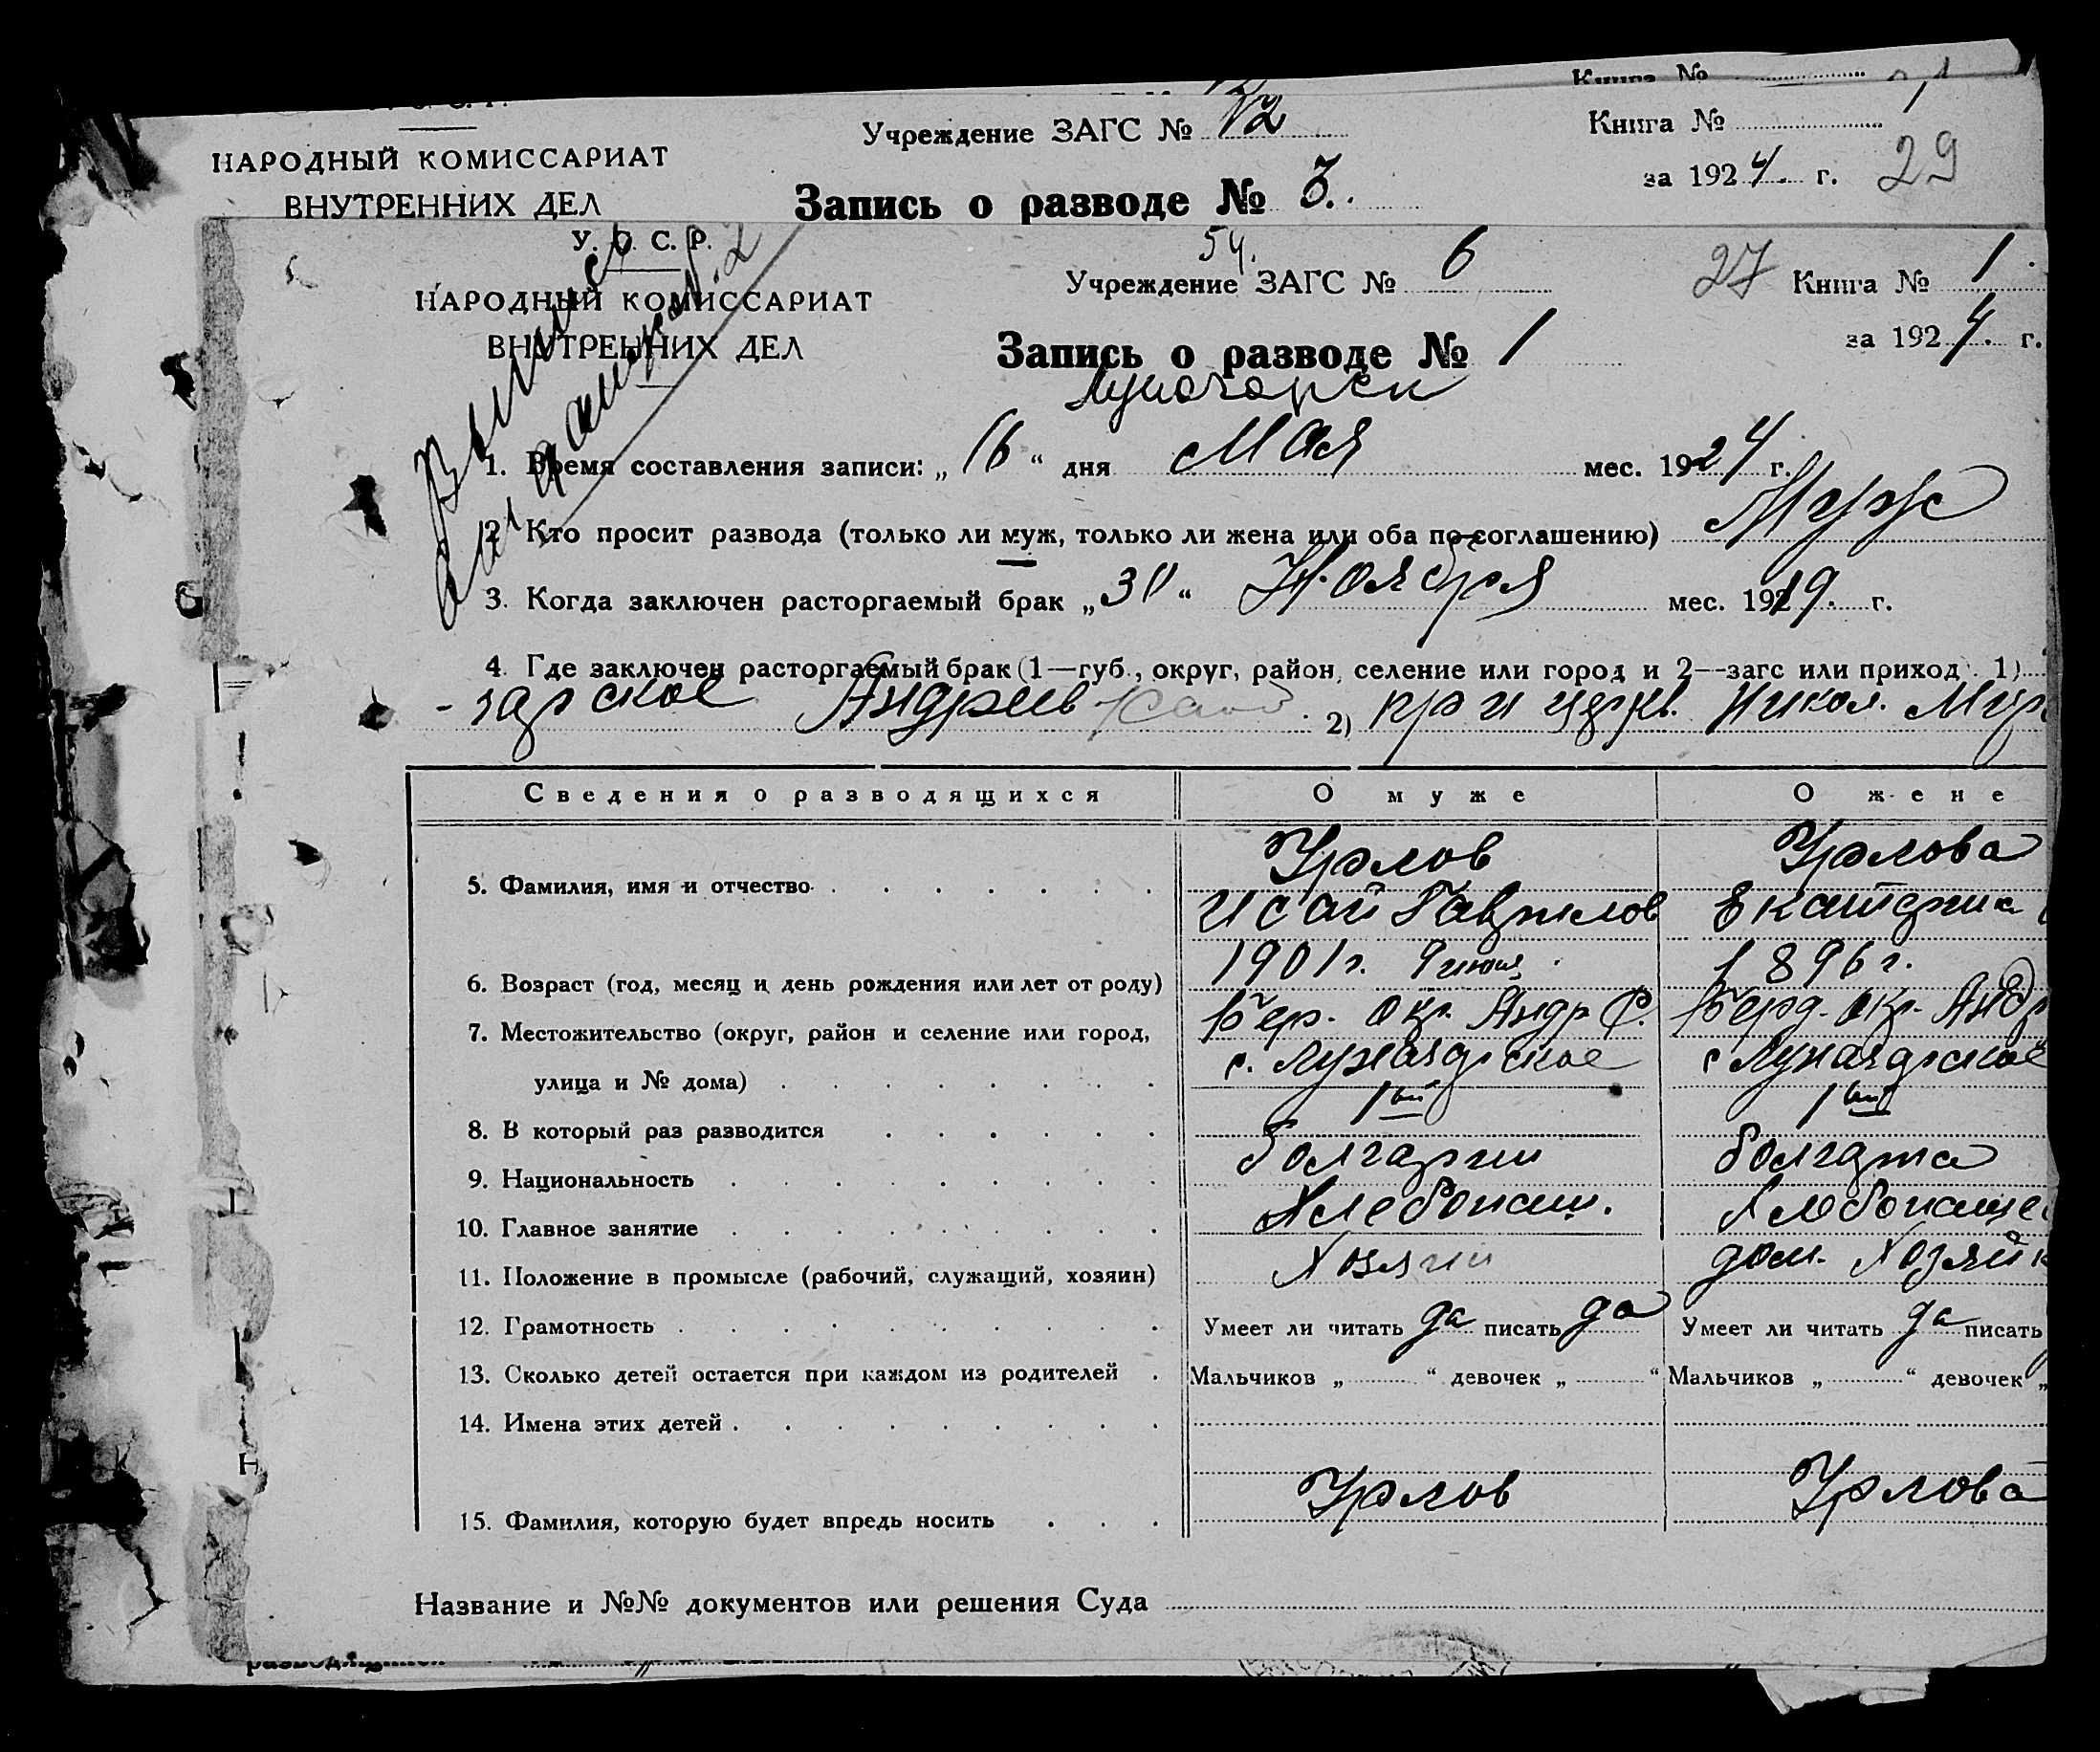 Книга №
Учреждение ЗАГС № 12
Книга № 1
НАРОДНЫЙ КОМИССАРИАТ
за 1924. г. 29
ВНУТРЕННИХ ДЕЛ
Запись о разводе № 3.
У. С. С. Р.
54.
Учреждение ЗАГС № 6
27 Книга № 1.
НАРОДНЫЙ КОМИССАРИАТ
ВНУТРЕННИХ ДЕЛ
Запись о разводе № 1
за 1924. г.
1. Время составления записи: „ 16 “ дня Мая мес. 1924 г.
2. Кто просит развода (только ли муж, только ли жена или оба по соглашению) Муж
3. Когда заключен расторгаемый брак „ 30 “ Ноября мес. 1919. г.
4. Где заключен расторгаемый брак (1—губ., округ, район, селение или город и 2—загс или приход). 1)
-гарское Андреев 2) при церкв. Никол. Мир
Сведения о разводящихся
О муже
О жене
Урлов
Урлова
5. Фамилия, имя и отчество
Исай Гаврилов
Екатерина
1901 г. 9 июня
1896 г.
6. Возраст (год, месяц и день рождения или лет от роду)
Бер. Окр. Андр. Р.
Берд. Окр. Андр
7. Местожительство (округ, район и селение или город,
с. Луначарское
с Луначарское
улица и № дома)
1ый
1ый
8. В который раз разводится
болгарин
болгарка
9. Национальность
Хлебопаш.
Хлебопаше
10. Главное занятие
Хозяин
дом. Хозяйк
11. Положение в промысле (рабочий, служащий, хозяин)
12. Грамотность
Умеет ли читать да писать да
Умеет ли читать да писать
13. Сколько детей остается при каждом из родителей
Мальчиков „ “ девочек „ “
Мальчиков „ “ девочек „
14. Имена этих детей
Урлов
Урлова
15. Фамилия, которую будет впредь носить
Название и №№ документов или решения Суда